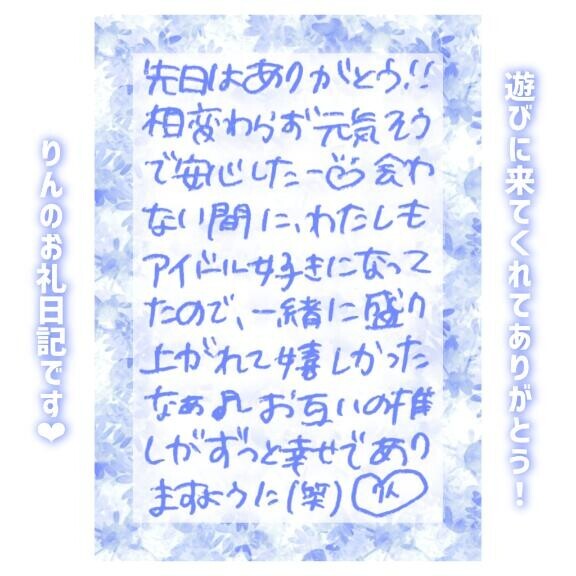 遊びに来てくれてありがとう!
先日はありがとう!!
相変わらず元気そう
で安心したー♡会わ
ない間に、わたしも
アイドル好きになって
たので、一緒に盛り
上がれて嬉しかった
なぁ♪お互いの推
しがずっと幸せであり
ますように(笑)りん
りんのお礼日記です❤